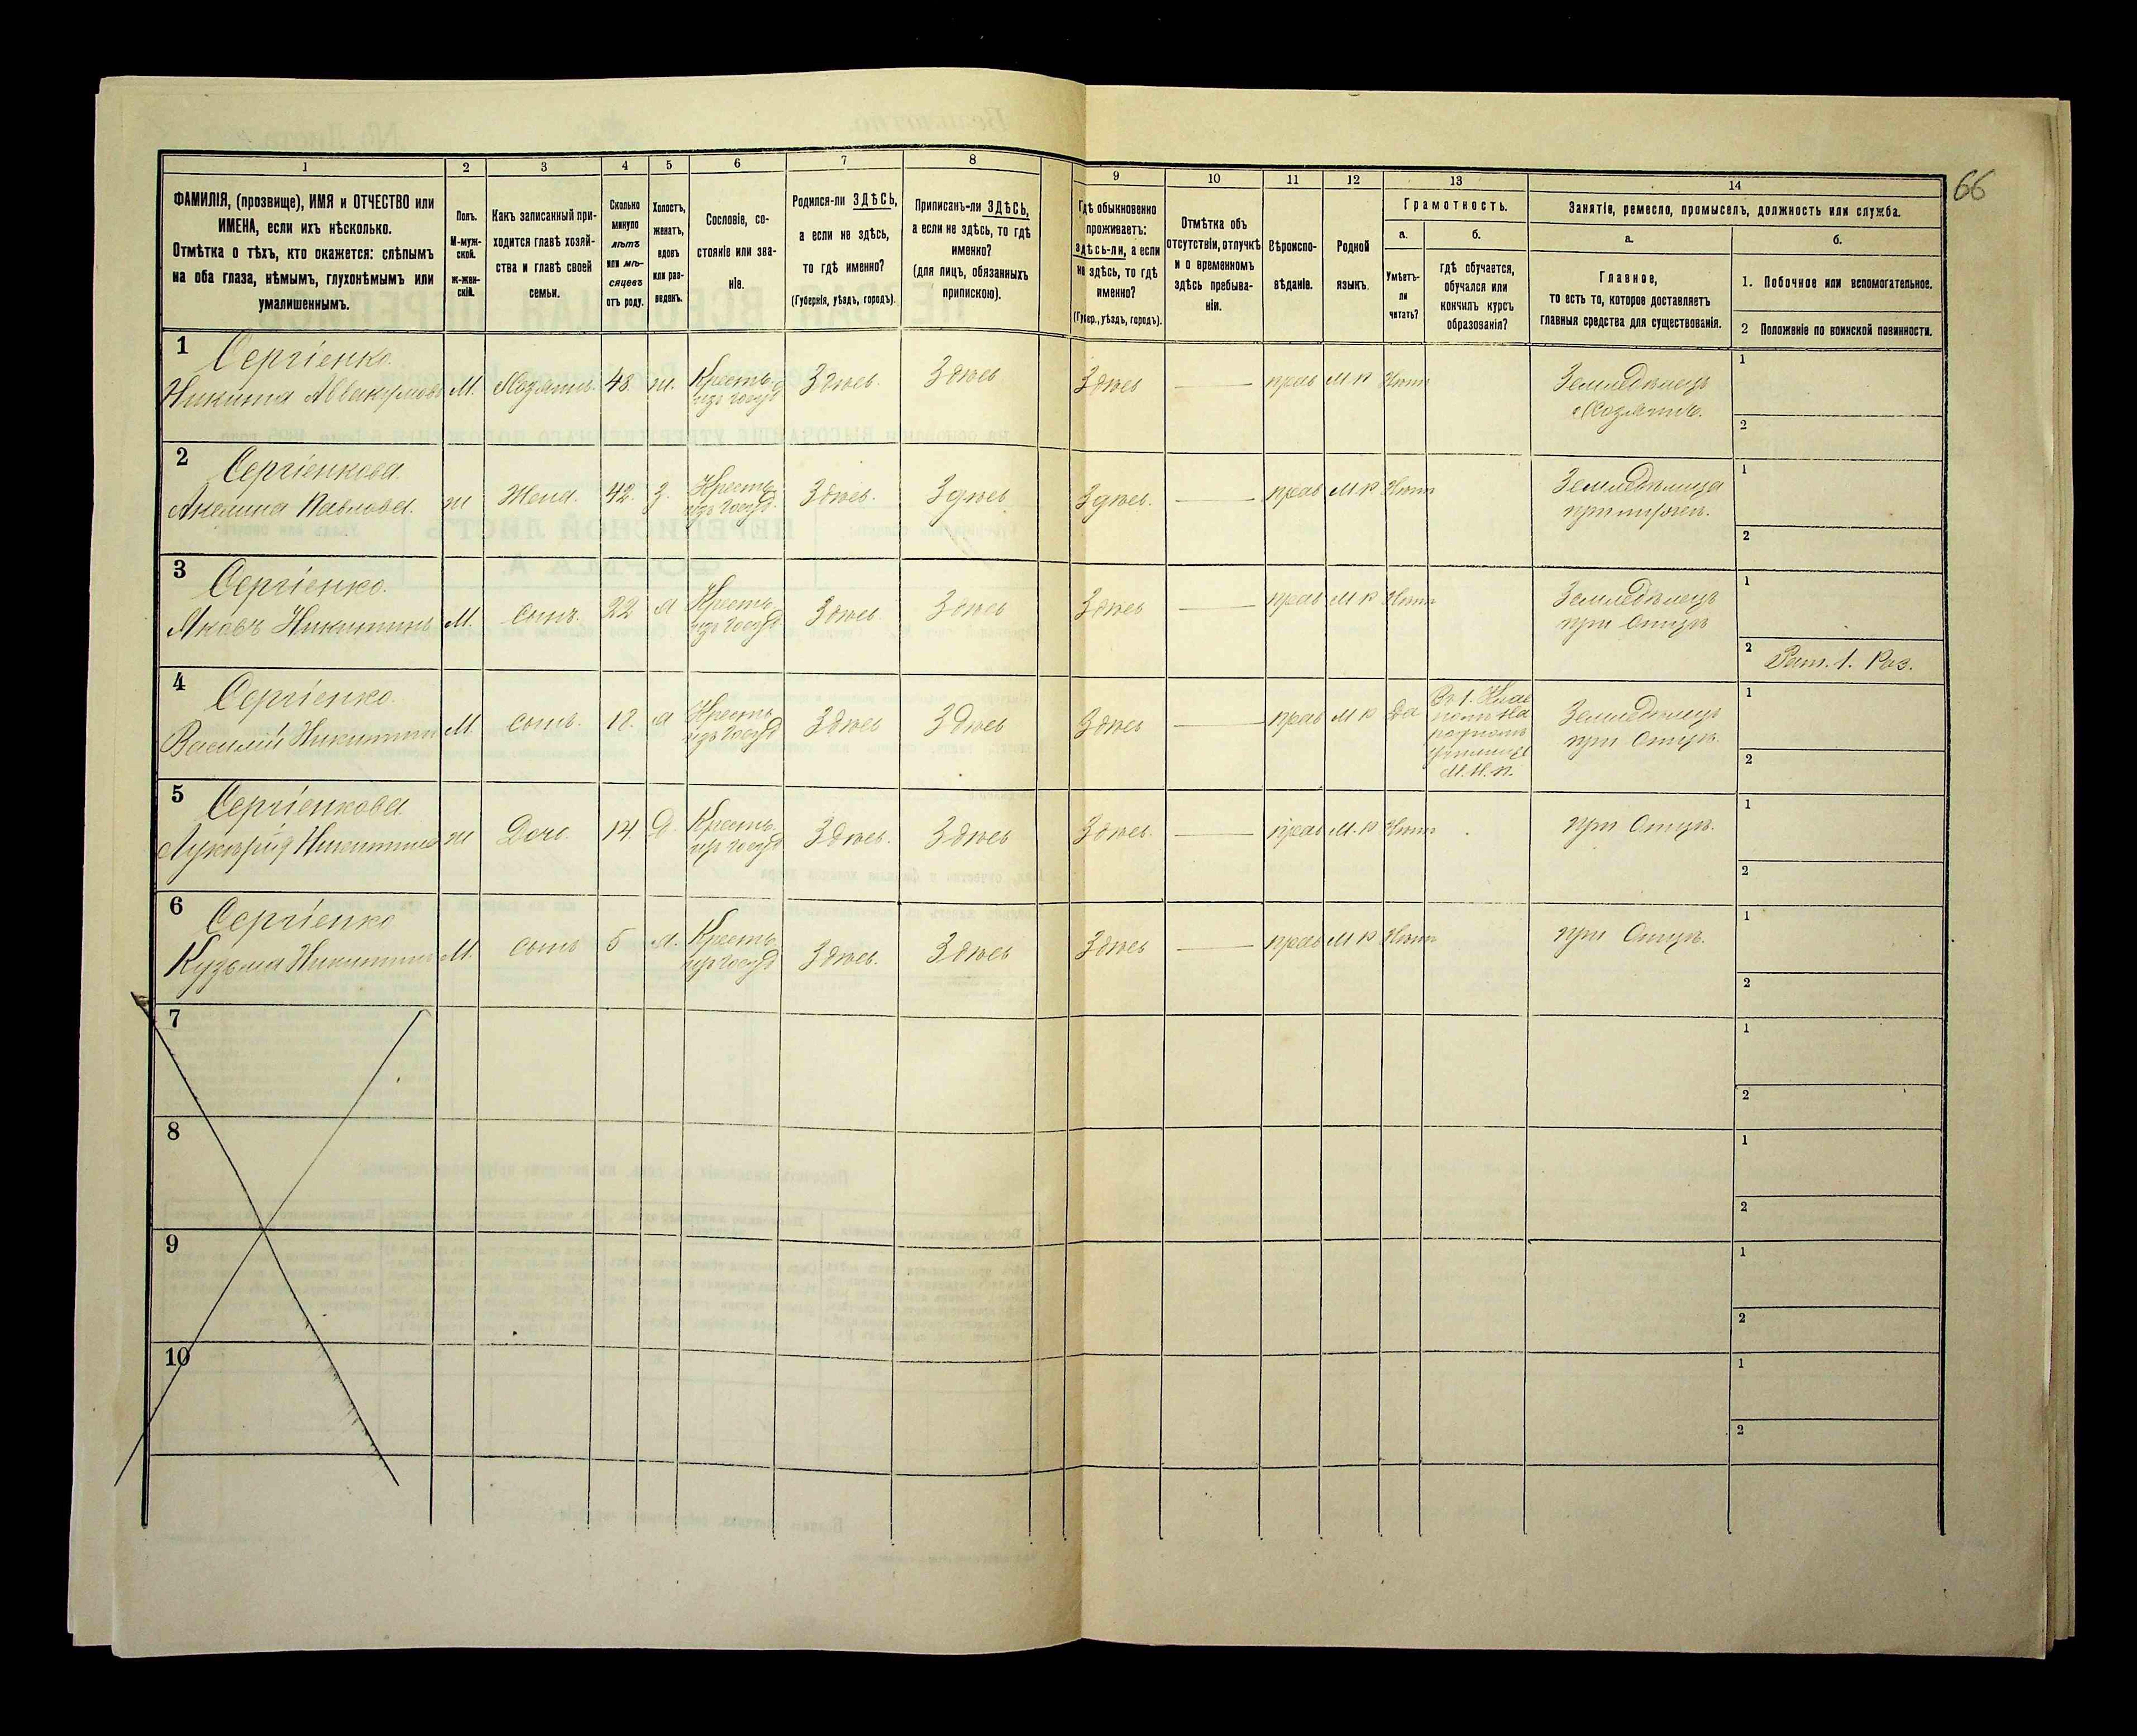 66
1
2
3
4
5
6
7
8
9
10
11
12
13
14
ФАМИЛІЯ, (прозвище), ИМЯ и ОТЧЕСТВО или
ИМЕНА, если ихъ нѣсколько.
Отмѣтка о тѣхъ, кто окажется: слѣпымъ
на оба глаза, нѣмымъ, глухонѣмымъ или
умалишеннымъ.
Полъ.
М-муж-
ской.
ж-жен-
скій.
Какъ записанный при-
ходится главѣ хозяй-
ства и главѣ своей
семьи.
Сколько
минуло
лѣтъ
или мѣ-
сяцевъ
отъ роду.
Холостъ,
женатъ,
вдовъ
или раз-
веденъ.
Сословіе, со-
стояніе или зва-
ніе.
Родился-ли ЗДѢСЬ,
а если не здѣсь,
то гдѣ именно?
(Губернія, уѣздъ, городъ).
Приписанъ-ли ЗДѢСЬ,
а если не здѣсь, то гдѣ
именно?
(для лицъ, обязанныхъ
припискою).
Гдѣ обыкновенно
проживаетъ:
здѣсь-ли, а если
не здѣсь, то гдѣ
именно?
(Губер., уѣздъ, городъ).
Отмѣтка объ
отсутствіи, отлучкѣ
и о временномъ
здѣсь пребыва-
ніи.
Вѣроиспо-
вѣданіе.
Родной
языкъ.
Грамотность.
а.
Умѣетъ-
ли
читать?
б.
гдѣ обучается,
обучался или
кончилъ курсъ
образованія?
Занятіе, ремесло, промыселъ, должность или служба.
а.
Главное,
то есть то, которое доставляетъ
главныя средства для существованія.
б.
1. Побочное или вспомогательное.
2 Положеніе по воинской повинности.
1 Сергіенко.
Никита Аввакумовъ М. Хозяинъ. 48. ж. Крестья. изъ госуд Здѣсь. Здѣсь Здѣсь — прав М.Р Нѣтъ Земледѣлецъ Хозяинъ. 1 2
2 Сергіенкова.
Акелина Павлова. Ж Жена. 42. З. Крестья. изъ госуд. Здѣсь. Здѣсь Здѣсь. — прав М.Р Нѣтъ Земледѣлица при мужѣ. 1 2
3 Сергіенко.
Яковъ Никитинъ М. сынъ. 22 Х Крестья. изъ госуд Здѣсь Здѣсь Здѣсь — прав М.Р Нѣтъ Земледѣлецъ при Отцѣ 1 2 Рат. 1. Раз.
4 Сергіенко.
Василій Никитин М. сынъ. Х Крестья. изъ госуд Здѣсь Здѣсь Здѣсь — прав М.Р Да Въ 1. Клас
родномъ
училищѣ
М.Н.П.
Земледѣлецъ при Отцѣ. 1 2
5 Сергіенкова
Лукерія Никитина Ж Дочь. 14. Д. Крестья. изъ госуд Здѣсь. Здѣсь Здѣсь. — прав М.Р Нѣтъ при Отцѣ. 1 2
6 Сергіенко
Кузьма Никитин М. сынъ 5 Х. Крестья. изъ госуд Здѣсь. Здѣсь Здѣсь — прав М.Р Нѣтъ при Отцѣ. 1 2
7 1 2
8 1 2
9 1 2
10 1 2